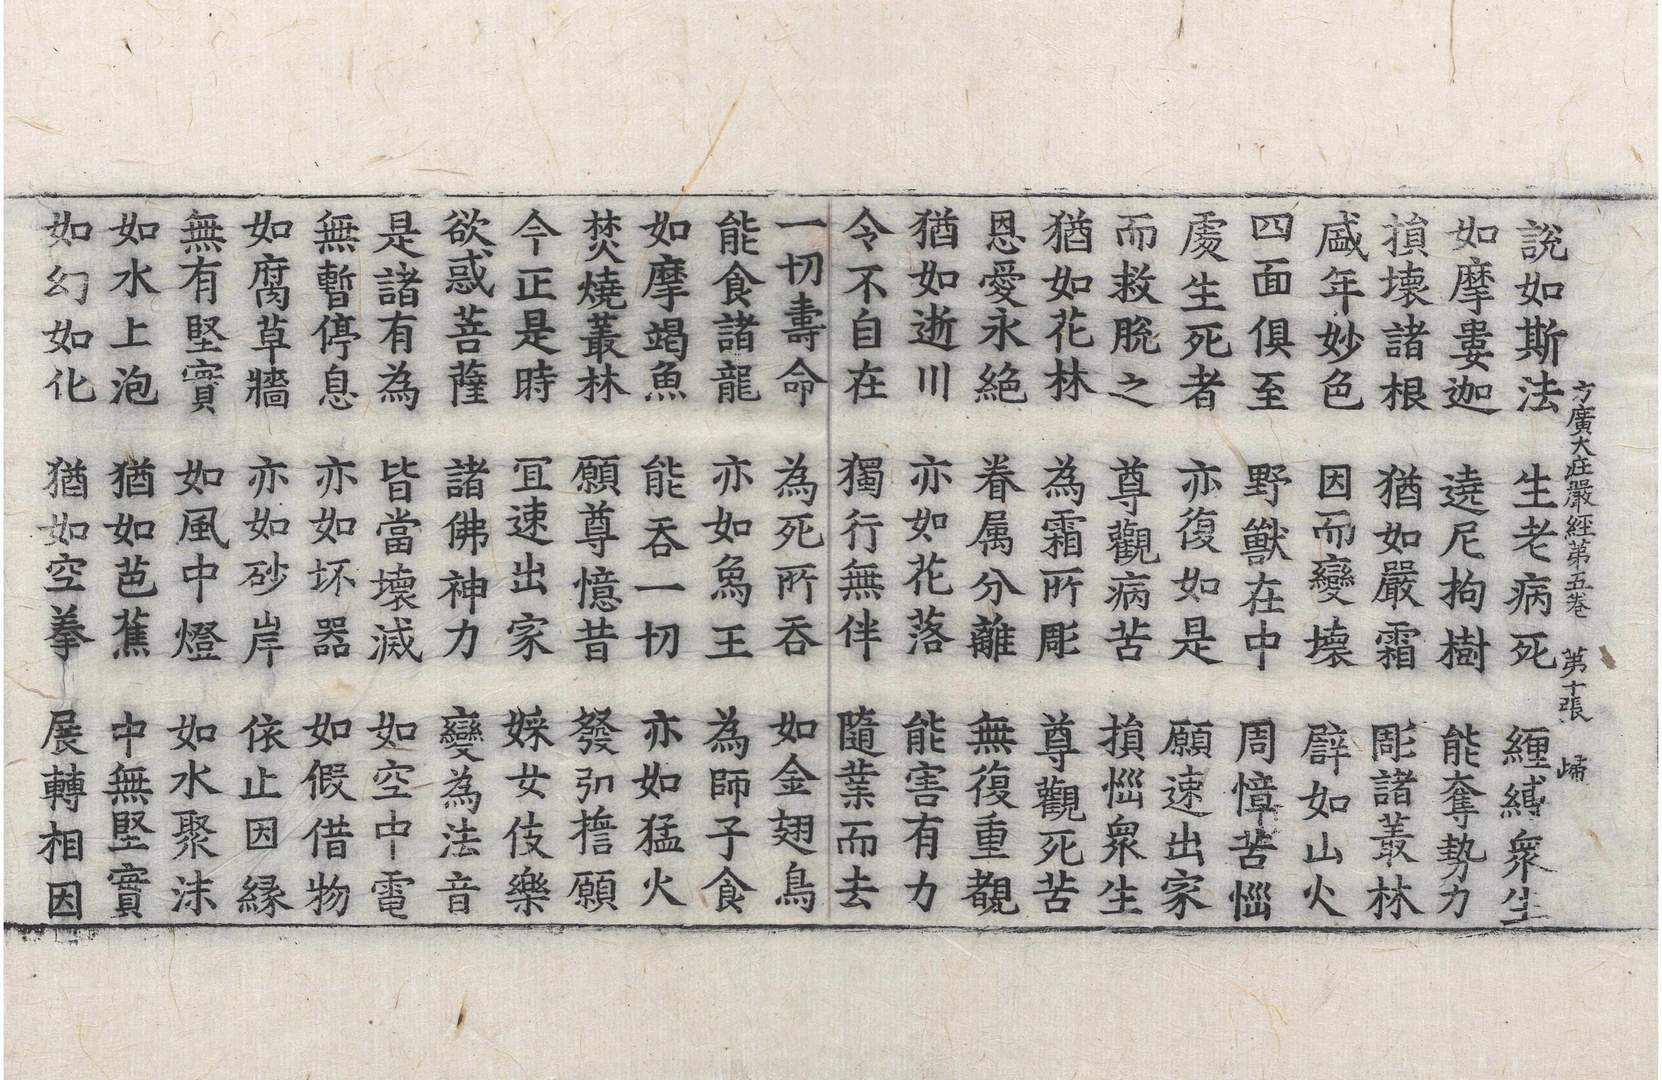 方廣大莊嚴經第五卷 第十張
說如斯法 生老病死 纏縛衆生
如摩婁迦 遶尼拘樹 能奪勢力
損壞諸根 猶如嚴霜 彫諸叢林
盛年妙色 因而變壞 譬如山火
四面俱至 野獸在中 周慞苦惱
處生死者 亦復如是 願速出家
而救脫之 尊觀病苦 損惱衆生
猶如花林 為霜所彫 尊觀死苦
恩愛永絕 眷属分離 無復重覩
猶如逝川 亦如花落 能害有力
令不自在 獨行無伴 隨業而去
一切壽命 為死所吞 如金翅鳥
能食諸龍 亦如為王 為師子食
如摩竭魚 能吞一切 亦如猛火
焚燒叢林 願尊憶昔 發弘擔願
今正是時 冝速出家 婇女伎樂
欲惑菩薩 諸佛神力 變為法音
是諸有為 皆當壞滅 如空中電
無暫停息 亦如坏器 如假借物
如腐草牆 亦如砂岸 依止因緣
無有堅實 如風中燈 如水聚沫
如水上泡 猶如芭蕉 中無堅實
如幻如化 猶如空拳 展轉相因